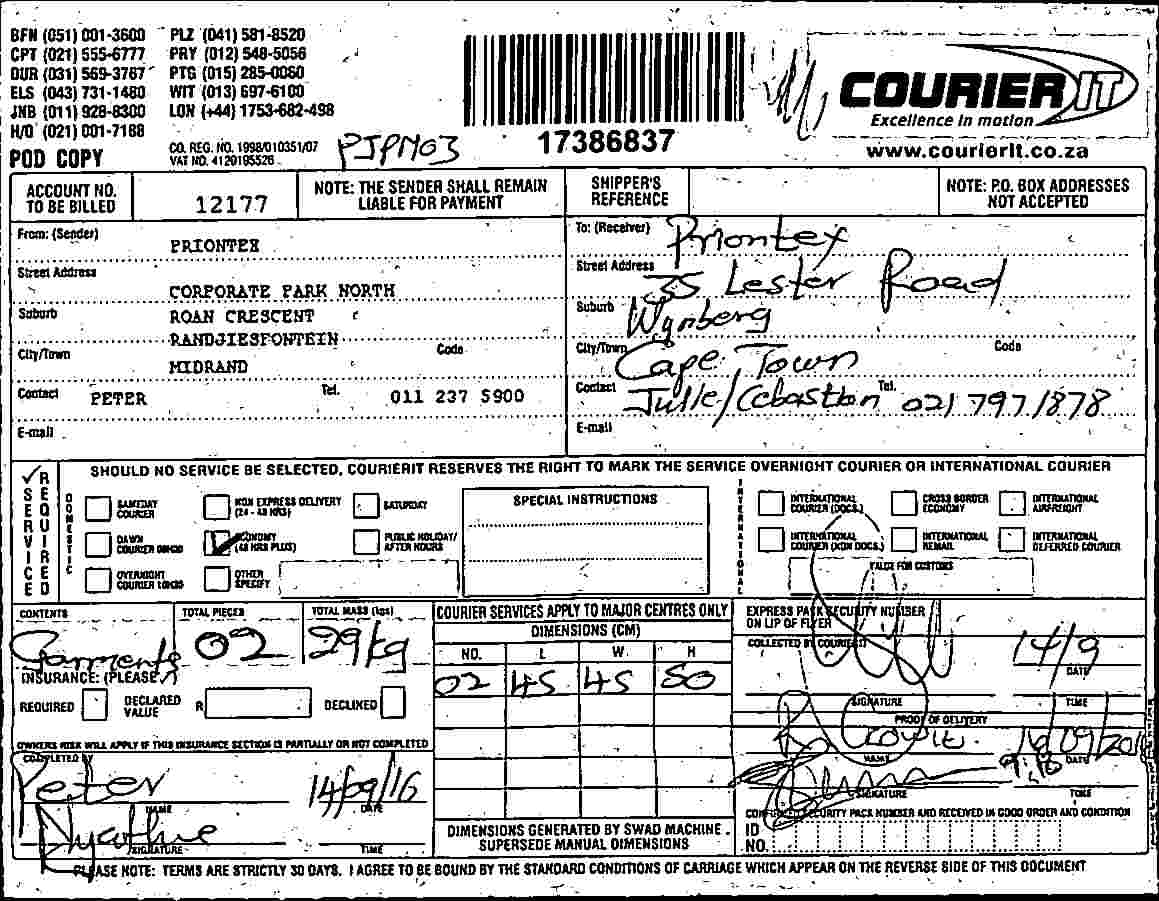 BFN (051) 001-3600 PLZ (041) 581-8520
CPT (021) 555-6777 PRY (012) 548-5056
DUR (031) 569-3767 PTG (015) 285-0060
ELS (043) 731-1480 WIT (013) 697-6100
JNB (011) 928-8300 LON (+44) 1753-682-498
H/O (021) 001-7188
POD COPY
CO. REG. NO. 1998/010351/07
VAT NO. 4120195526
PJPM03
17386837
COURIER IT
Excellence in motion
www.courierit.co.za
ACCOUNT NO. TO BE BILLED 12177
NOTE: THE SENDER SHALL REMAIN LIABLE FOR PAYMENT
SHIPPER'S REFERENCE
NOTE: P.O. BOX ADDRESSES NOT ACCEPTED
From: (Sender) PRIONTEX
Street Address
CORPORATE PARK NORTH
Suburb ROAN CRESCENT
RANDJIESFONTEIN
City/Town MIDRAND Code
Contact PETER Tel. 011 237 5900
E-mail
To: (Receiver) Priontex
Street Address 35 Lester Road
Suburb Wynberg
City/Town Cape Town Code
Contact Julie/Cebastian Tel. 021 797 1878
E-mail
SERVICE REQUIRED
SHOULD NO SERVICE BE SELECTED, COURIERIT RESERVES THE RIGHT TO MARK THE SERVICE OVERNIGHT COURIER OR INTERNATIONAL COURIER
DOMESTIC
SAMEDAY COURIER
NON EXPRESS DELIVERY (24 - 48 HRS)
SATURDAY
DAWN COURIER 08H30
ECONOMY (48 HRS PLUS)
PUBLIC HOLIDAY/ AFTER HOURS
OVERNIGHT COURIER 10H30
OTHER SPECIFY
SPECIAL INSTRUCTIONS
INTERNATIONAL
INTERNATIONAL COURIER (DOCS.)
CROSS BORDER ECONOMY
INTERNATIONAL AIRFREIGHT
INTERNATIONAL COURIER (NON DOCS.)
INTERNATIONAL REMAIL
INTERNATIONAL DEFERRED COURIER
VALUE FOR CUSTOMS
CONTENTS Garments
TOTAL PIECES 02
TOTAL MASS (kgs) 29kg
INSURANCE: (PLEASE ✓)
REQUIRED DECLARED VALUE R DECLINED
OWNERS RISK WILL APPLY IF THIS INSURANCE SECTION IS PARTIALLY OR NOT COMPLETED
COMPLETED BY
Peter 14/09/16
NAME DATE
SIGNATURE TIME
COURIER SERVICES APPLY TO MAJOR CENTRES ONLY
DIMENSIONS (CM)
NO. L W H
02 45 45 50
DIMENSIONS GENERATED BY SWAD MACHINE SUPERSEDE MANUAL DIMENSIONS
EXPRESS PACK SECURITY NUMBER ON LIP OF FLYER
COLLECTED BY COURIERIT
14/9
DATE
SIGNATURE TIME
PROOF OF DELIVERY
NAME DATE
SIGNATURE TIME
CONFIRMED SECURITY PACK NUMBER AND RECEIVED IN GOOD ORDER AND CONDITION
ID NO.
PLEASE NOTE: TERMS ARE STRICTLY 30 DAYS. I AGREE TO BE BOUND BY THE STANDARD CONDITIONS OF CARRIAGE WHICH APPEAR ON THE REVERSE SIDE OF THIS DOCUMENT